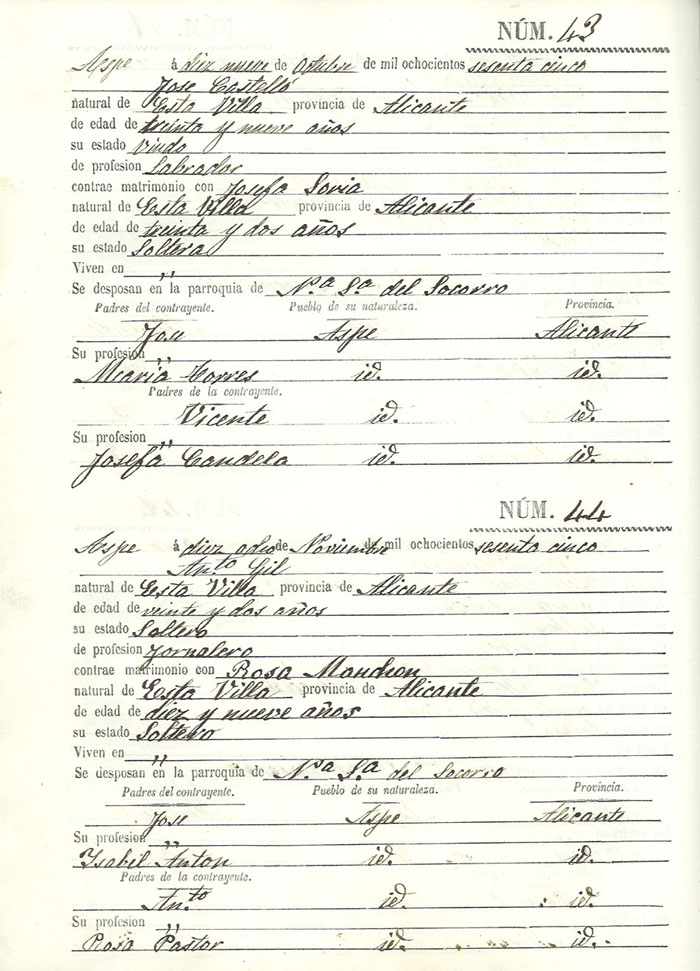 NÚM. 43
Aspe á diez nueve de Octubre de mil ochocientos sesenta cinco
Jose Castelló
natural de Esta Villa provincia de Alicante
de edad de treinta y nueve años
su estado Viudo
de profesion Labrador
contrae matrimonio con Josefa Soria
natural de Esta Villa provincia de Alicante
de edad de treinta y dos años
su estado Soltera
Viven en ,,
Se desposan en la parroquia de N.ª S.ª del Socorro
Padres del contrayente. Pueblo de su naturaleza. Provincia.
Jose Aspe Alicante
Su profesion ,,
Maria Torres id. id.
Padres de la contrayente.
Vicente id. id.
Su profesion ,,
Josefa Candela id. id.
NÚM. 44
Aspe á diez ocho de Noviembre de mil ochocientos sesenta cinco
An.to Gil
natural de Esta Villa provincia de Alicante
de edad de veinte y dos años
su estado Soltero
de profesion Jornalero
contrae matrimonio con Rosa Manchon
natural de Esta Villa provincia de Alicante
de edad de diez y nueve años
su estado Soltero
Viven en ,,
Se desposan en la parroquia de N.ª S.ª del Socorro
Padres del contrayente. Pueblo de su naturaleza. Provincia.
Jose Aspe Alicante
Su profesion ,,
Ysabel Anton id. id.
Padres de la contrayente.
An.to id. id.
Su profesion ,,
Rosa Pastor id. id.